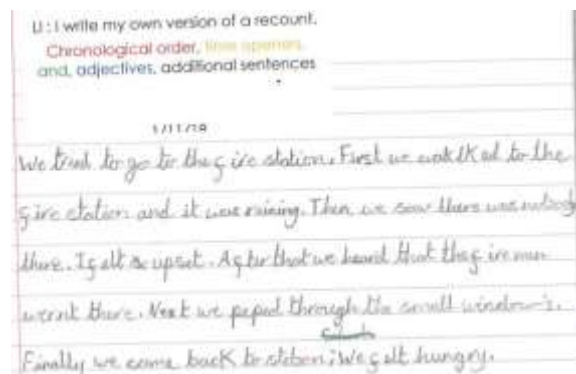 LI : I write my own version of a recount.
Chronological order, time openers,
and, adjectives, additional sentences
1/11/19
We tried to go to the fire station. First we walkked to the
fire station and it was raining. Then we saw there was nobody
there. I felt upset. After that we heard that the fire men
wernt there. Next we peped through the small window's.
Finally we came back to ; We felt hungry.